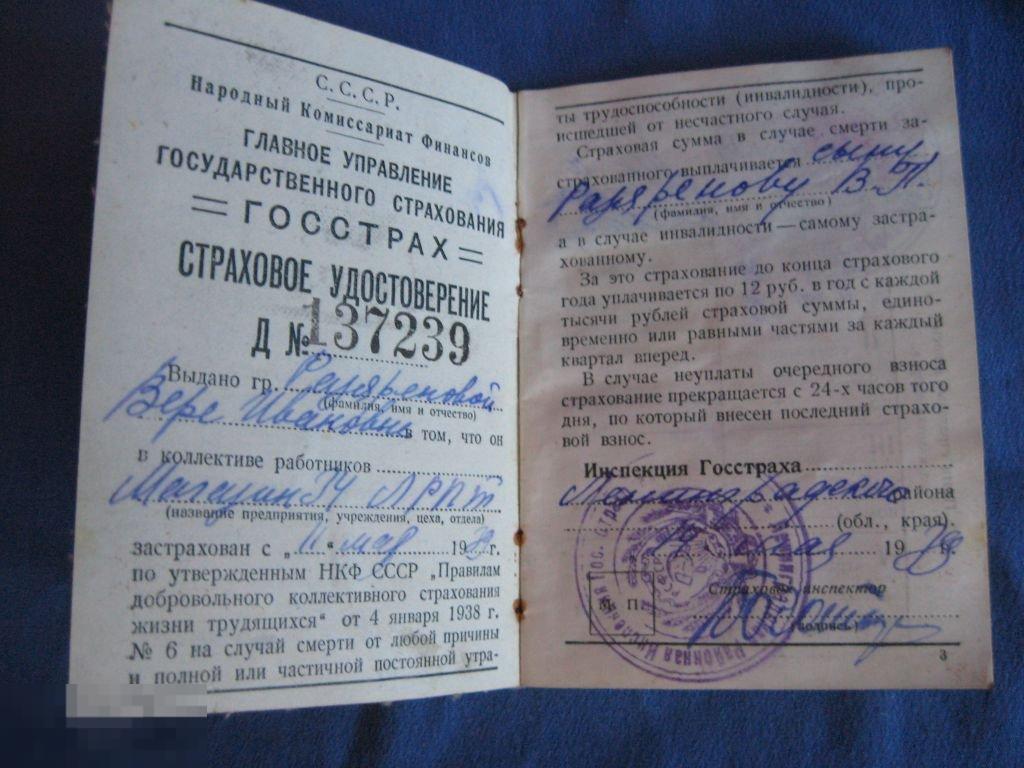 С.С.С.Р.
Народный Комиссариат Финансов
ГЛАВНОЕ УПРАВЛЕНИЕ
ГОСУДАРСТВЕННОГО СТРАХОВАНИЯ
= ГОССТРАХ =
СТРАХОВОЕ УДОСТОВЕРЕНИЕ
Д № 137239
Выдано гр.
(фамилия, имя и отчество)
Вере Ивановне в том, что он
в коллективе работников
Магазин 34
(название предприятия, учреждения, цеха, отдела)
застрахован с „11“ мая 1939 г.
по утвержденным НКФ СССР „Правилам
добровольного коллективного страхования
жизни трудящихся“ от 4 января 1938 г.
№ 6 на случай смерти от любой причины
и полной или частичной постоянной утра-
ты трудоспособности (инвалидности), про-
исшедшей от несчастного случая.
Страховая сумма в случае смерти за-
страхованного выплачивается сыну
В. П.
(фамилия, имя и отчество)
а в случае инвалидности — самому застра-
хованному.
За это страхование до конца страхового
года уплачивается по 12 руб. в год с каждой
тысячи рублей страховой суммы, едино-
временно или равными частями за каждый
квартал вперед.
В случае неуплаты очередного взноса
страхование прекращается с 24-х часов того
дня, по который внесен последний страхо-
вой взнос.
Инспекция Госстраха
района
(обл., края).
мая 1939 г.
М. П.
Страховой инспектор
(подпись)
3